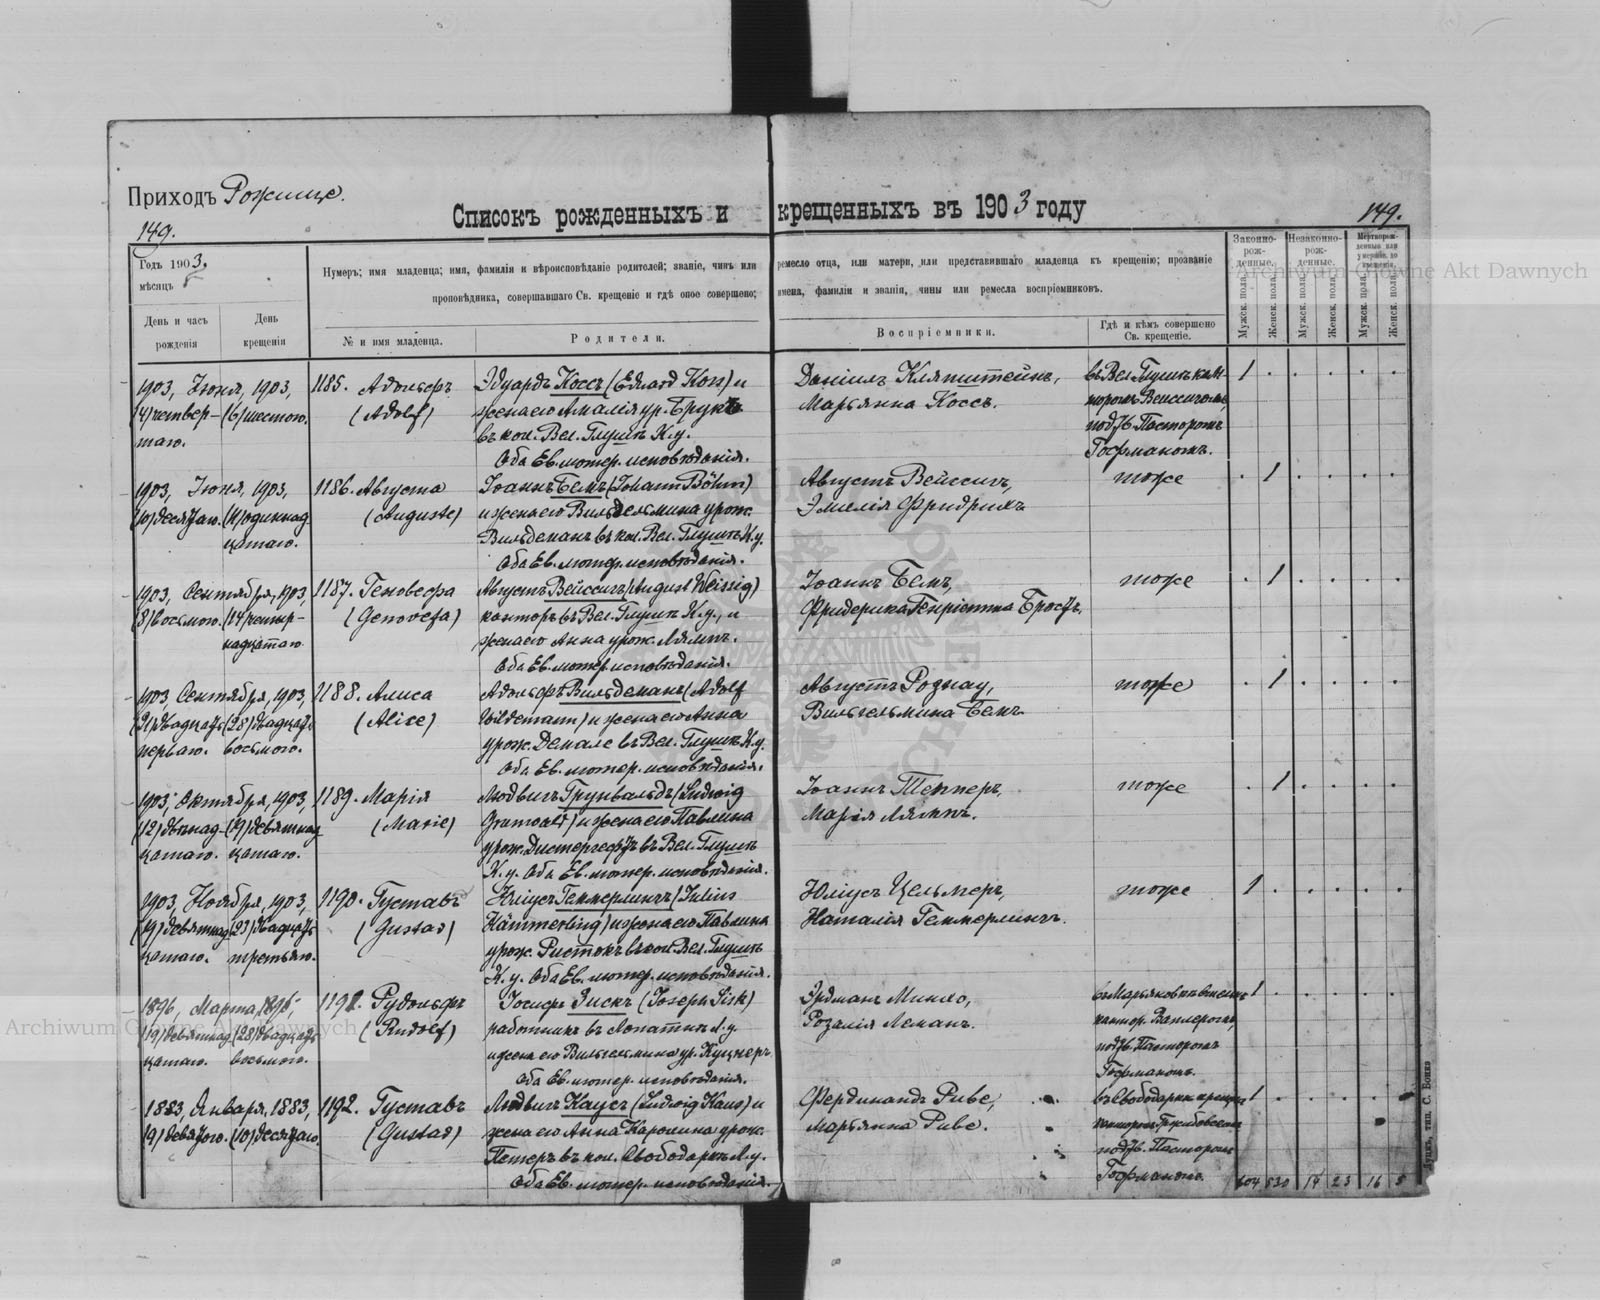 Приходъ Рожище.
Списокъ рожденныхъ и крещенныхъ въ 1903 году
149.
149.
Годъ 1903.
мѣсяцъ
Нумеръ; имя младенца; имя, фамилія и вѣроисповѣданіе родителей; званіе, чинъ или ремесло отца, или матери, или представившаго младенца къ крещенію; прозваніе
проповѣдника, совершавшаго Св. крещеніе и гдѣ оное совершено; имена, фамиліи и званія, чины или ремесла воспріемниковъ.
Законно-рож-денные.
Незаконно-рож-денные.
Мертворож-денные или умершіе до крещенія.
День и часъ рожденія
День крещенія
№ и имя младенца.
Родители.
Воспріемники.
Гдѣ и кѣмъ совершено Св. крещеніе.
Мужск. пола.
Женск. пола.
Мужск. пола.
Женск. пола.
Мужск. пола.
Женск. пола.
1903, Іюня, 1903, 1185. Адольфъ Эдуардъ Коссъ (Eduard Koss) и Даніилъ Кляпштейнъ, въ Вел. Глушѣ кан- 1
(4) четвер- (6) шестого. (Adolf) жена его Амалія ур. Брукъ Марьянна Коссъ. торомъ Вейссигомъ,
таго. въ кол. Вел. Глушѣ К.у. подтв. Пасторомъ
Оба Ев. лютер. исповѣданія. Гофманомъ.
1903, Іюня, 1903, 1186. Августа Іоаннъ Бемъ (Johann Böhm) Августъ Вейссигъ, тоже 1
(10) десятаго. (11) одиннад (Auguste) и жена его Вильгельмина урож. Эмилія Фридрихъ
цатаго. Вильдеманъ въ кол. Вел. Глушѣ К.у.
Оба Ев. лютер. исповѣданія.
1903, Сентября, 1903, 1187. Геновефа Августъ Вейссигъ (August Weissig) Іоаннъ Бемъ, тоже 1
(8) восьмого. (14) четыр- (Genovefa) канторъ въ Вел. Глушѣ К.у., и Фридерика Генріетта Бростъ.
надцатаго жена его Анна урож. Лямпъ.
Оба Ев. лютер. исповѣданія.
1903, Сентября, 1903, 1188. Алиса Адольфъ Вильдеманъ (Adolf Августъ Рознау, тоже 1
(21) двадцать (28) двадцать (Alice) Wildemann) и жена его Анна Вильгельмина Бемъ.
перваго. восьмого. урож. Демале въ Вел. Глушѣ К.у.
Оба Ев. лютер. исповѣданія.
1903, Октября, 1903, 1189. Марія Людвигъ Грунвальдъ (Ludwig Іоаннъ Тепперъ, тоже 1
(12) двѣнад- (19) девятнад (Marie) Grunwald) и жена его Павлина Марія Лямпъ.
цатаго. цатаго. урож. Дистергефтъ въ Вел. Глушѣ
К.у. Оба Ев. лютер. исповѣданія.
1903, Ноября, 1903, 1190. Густавъ Юліусъ Геммерлингъ (Julius Юліусъ Цельмеръ, тоже 1
(19) девятнад (23) двадцать (Gustav) Hämmerling) и жена его Павлина Наталія Геммерлингъ.
цатаго. третьяго. урож. Ристокъ въ кол. Вел. Глушѣ
К.у. Оба Ев. лютер. исповѣданія.
1896, Марта, 1896, 1191. Рудольфъ Іосифъ Зискъ (Joseph Sisk) Эрдманъ Милло, 1
(19) девятнад (28) двадцать (Rudolf) работникъ въ Лопатинѣ Л.у. Розалія Леманъ. кантор.
цатаго. восьмого. и жена его Вильгельмина ур. Куцнеръ подтв. Пасторомъ
Оба Ев. лютер. исповѣданія. Гофманомъ.
1883, Января, 1883, 1192. Густавъ Людвигъ Каусъ (Ludwig Kaus) и Фердинандъ Риве, въ Свободаркѣ 1
(9) девятого. (10) десятаго. (Gustav) жена его Анна Каролина урож. Марьянна Риве.
Петеръ въ кол. Свободаркѣ Л.у. подтв. Пасторомъ
Оба Ев. лютер. исповѣданія. Гофманомъ. 604 530 14 23 16 8
Луцкъ, тип. С. Бонка
Archiwum Główne Akt Dawnych
Archiwum Główne Akt Dawnych